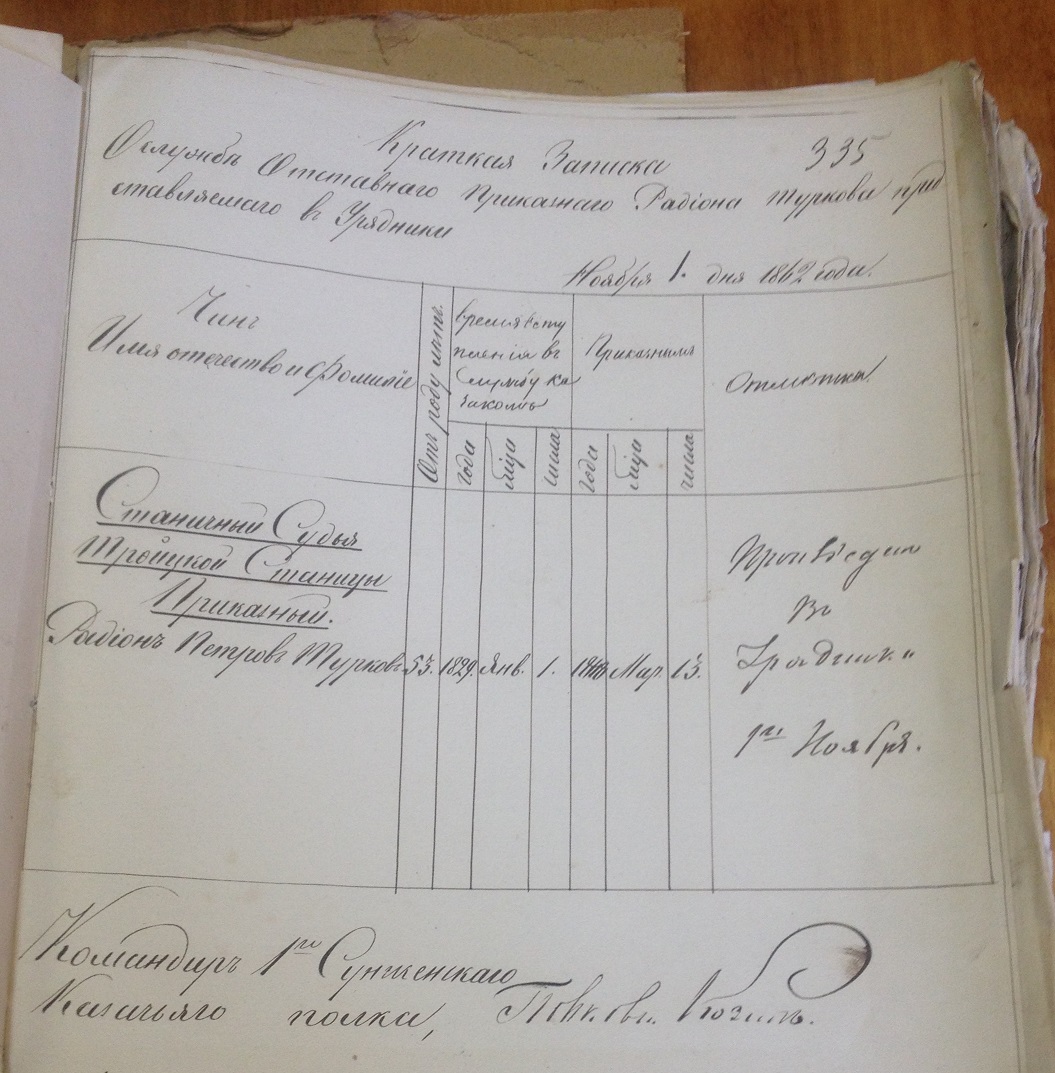 Краткая Записка 335
О службѣ Отставнаго Приказнаго Радіона Туркова пред
ставляемаго въ Урядники
Ноября 1. дня 1862 года.
Чинъ
Имя отечество и Фомиліе
Отъ роду лѣтъ.
Время всту
пленія въ
Службу ка
закомъ
Приказнымъ
Отмѣтка
года
мца
числа
года
мца
числа
Станичный Судья
Тройцкой Станицы
Приказный.
Радіонъ Петровъ Турковъ 53. 1829. Янв. 1. Мар. 13.
Произведен
въ
Урядники
1го Ноября.
Командиръ 1го Сунженскаго
Казачьяго полка,